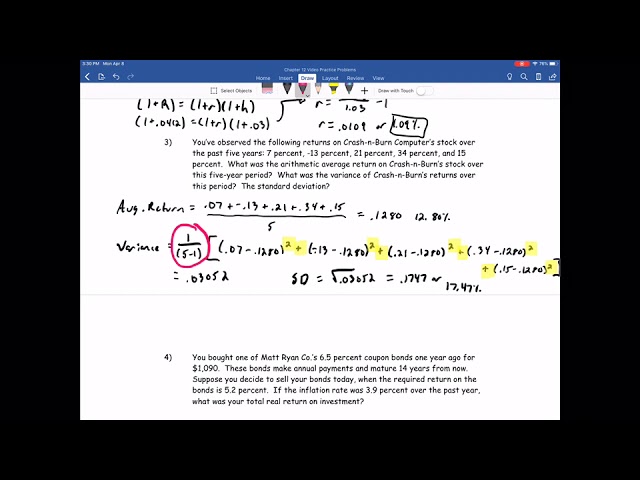 3:30 PM Mon Apr 8
76%
Chapter 12 Video Practice Problems
Home Insert Draw Layout Review View
Select Objects Draw with Touch
(1+R) = (1+r)(1+h) r = 1.03 -1
(1+.0412) = (1+r)(1+.03) r = .0109 or 1.09%
3) You've observed the following returns on Crash-n-Burn Computer's stock over
the past five years: 7 percent, -13 percent, 21 percent, 34 percent, and 15
percent. What was the arithmetic average return on Crash-n-Burn's stock over
this five-year period? What was the variance of Crash-n-Burn's returns over
this period? The standard deviation?
Avg. Return = .07 + -.13 + .21 + .34 + .15 / 5 = .1280 12.80%
Variance = 1/(5-1) [(.07 - .1280)² + (-.13 - .1280)² + (.21 - .1280)² + (.34 - .1280)²
+ (.15 - .1280)²]
= .03052 SD = √.03052 = .1747 or 17.47%
4) You bought one of Matt Ryan Co.'s 6.5 percent coupon bonds one year ago for
$1,090. These bonds make annual payments and mature 14 years from now.
Suppose you decide to sell your bonds today, when the required return on the
bonds is 5.2 percent. If the inflation rate was 3.9 percent over the past year,
what was your total real return on investment?